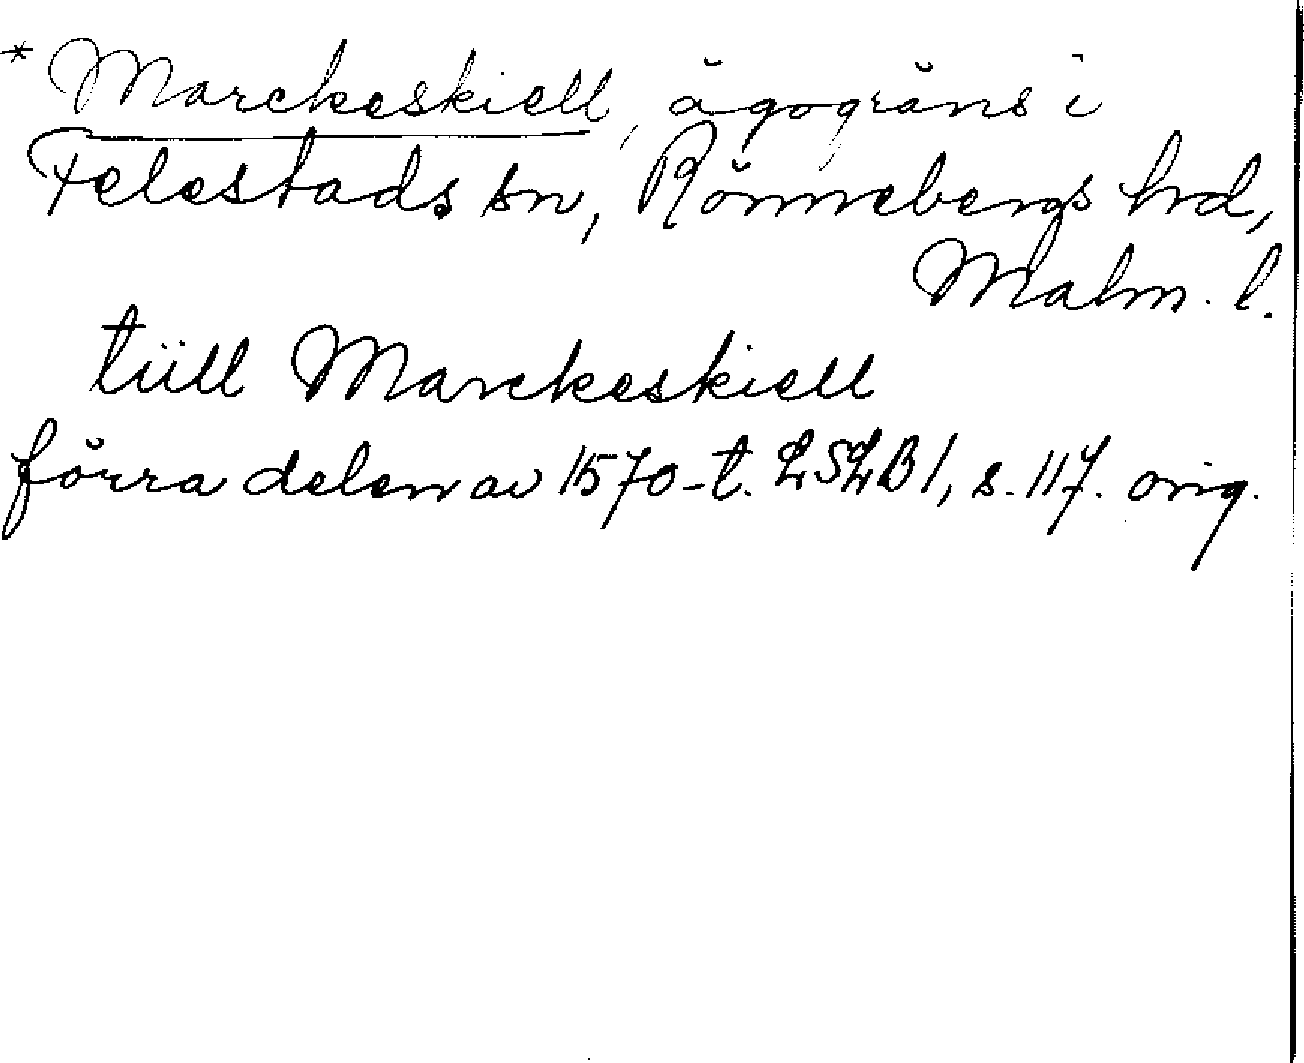 * Marckeskiell, ägogräns i
Felestads sn, Rönnebergs hrd,
Malm. l.
tiill Marckeskiell
förra delen av 1570-t. LSLB 1, s. 117. orig.